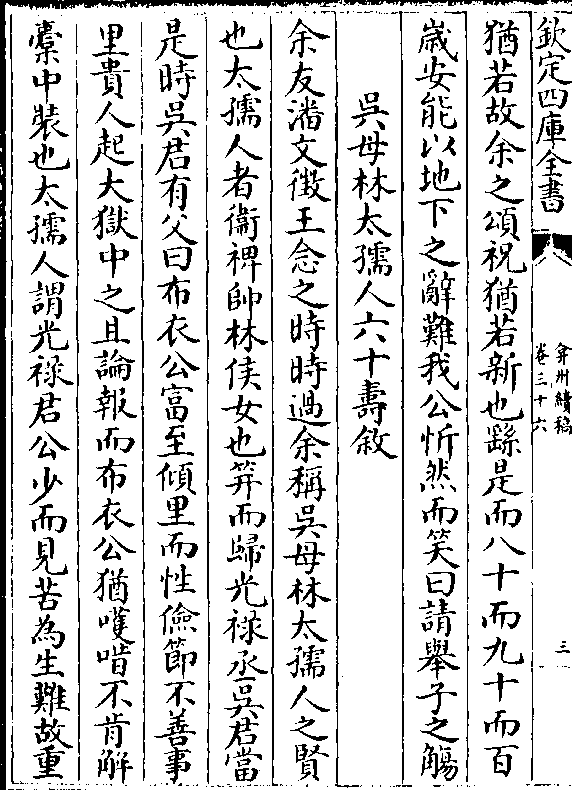 欽定四庫全書
弇州續稿
卷三十六
三
猶若故余之頌祝猶若新也繇是而八十而九十而百
歲安能以地下之辭難我公忻然而笑曰請舉子之觴
吳母林太孺人六十壽敘
余友潘文徵王念之時時過余稱吳母林太孺人之賢
也太孺人者衞裨帥林侯女也笄而歸光祿丞吳君當
是時吳君有父曰布衣公富至傾里而性儉節不善事
里貴人起大獄中之且論報而布衣公猶嚄啃不肯解
橐中裝也太孺人謂光祿君公少而見苦為生難故重